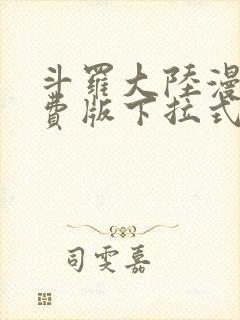 斗羅大陸漫
費版下拉式
司雯嘉